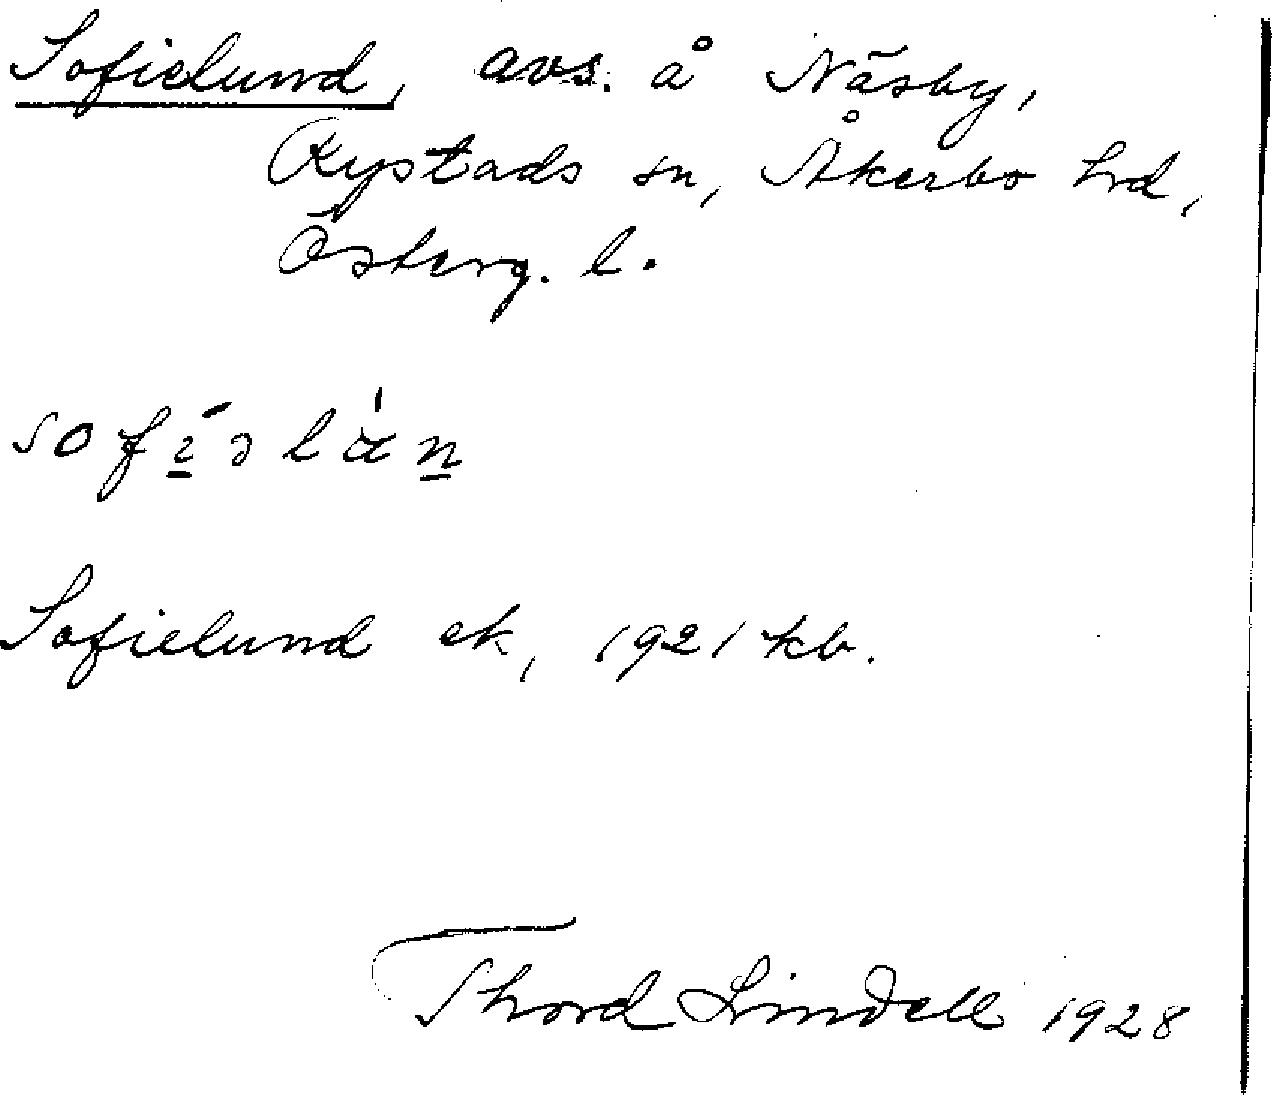 Sofielund, avs. å Näsby,
Rystads sn, Åkerbo hd,
Österg. l.
Sofielund ek, 1921 kb.
Thord Lindell 1928